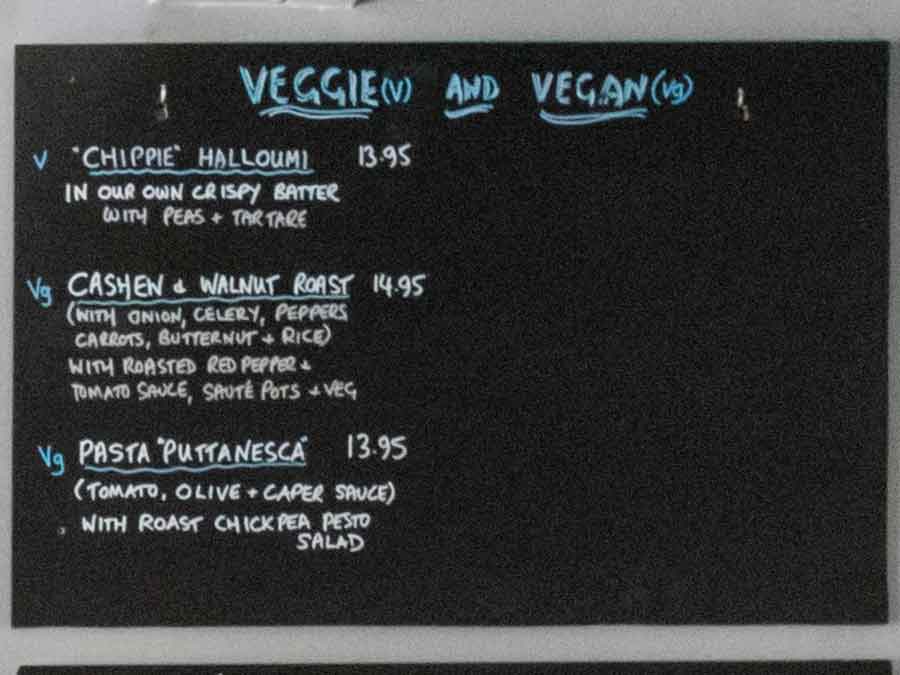 VEGGIE(V) AND VEGAN(Vg)
V "CHIPPIE" HALLOUMI 13.95
IN OUR OWN CRISPY BATTER
WITH PEAS + TARTARE
Vg CASHEN & WALNUT ROAST 14.95
(WITH ONION, CELERY, PEPPERS
CARROTS, BUTTERNUT + RICE)
WITH ROASTED RED PEPPER +
TOMATO SAUCE, SAUTÉ POTS + VEG
Vg PASTA "PUTTANESCA" 13.95
(TOMATO, OLIVE + CAPER SAUCE)
WITH ROAST CHICKPEA PESTO
SALAD